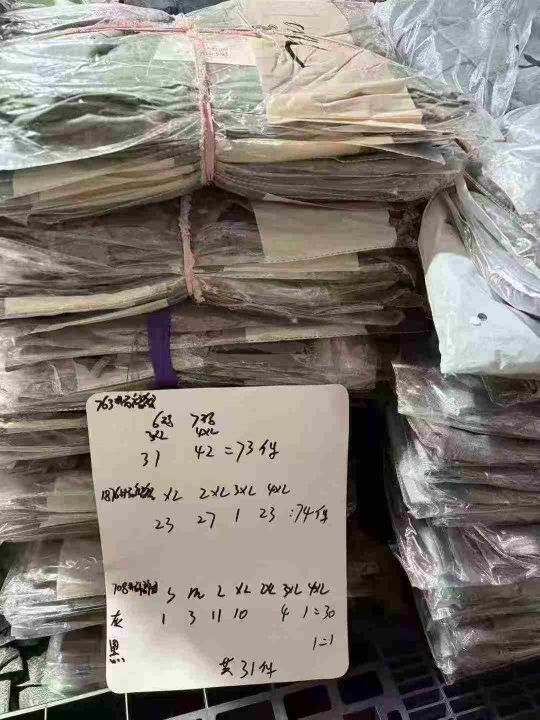 763
6码 7码
3XL 4XL
31 42 =73件
1876 XL 2XL 3XL 4XL
23 27 1 23 :74件
708 S M L XL 2XL 3XL 4XL
灰 1 3 11 10 4 1=30
黑 1=1
共31件